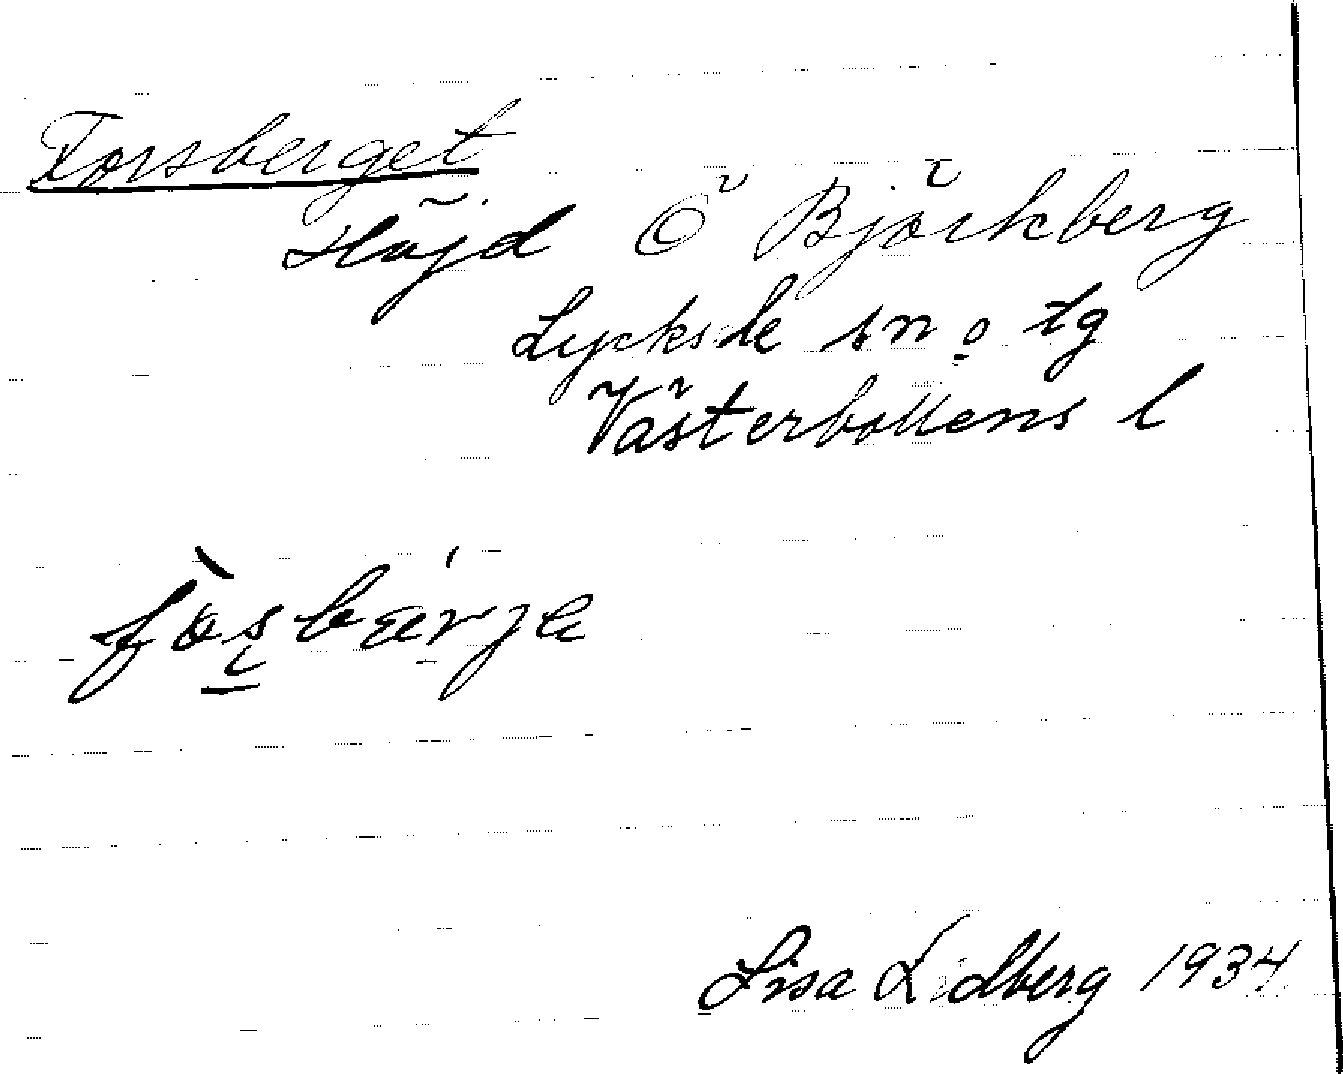 Forsberget
Höjd Ö Björkberg
Lycksele sn o tg
Västerbottens l
fòsbárje
Lisa Lidberg 1934